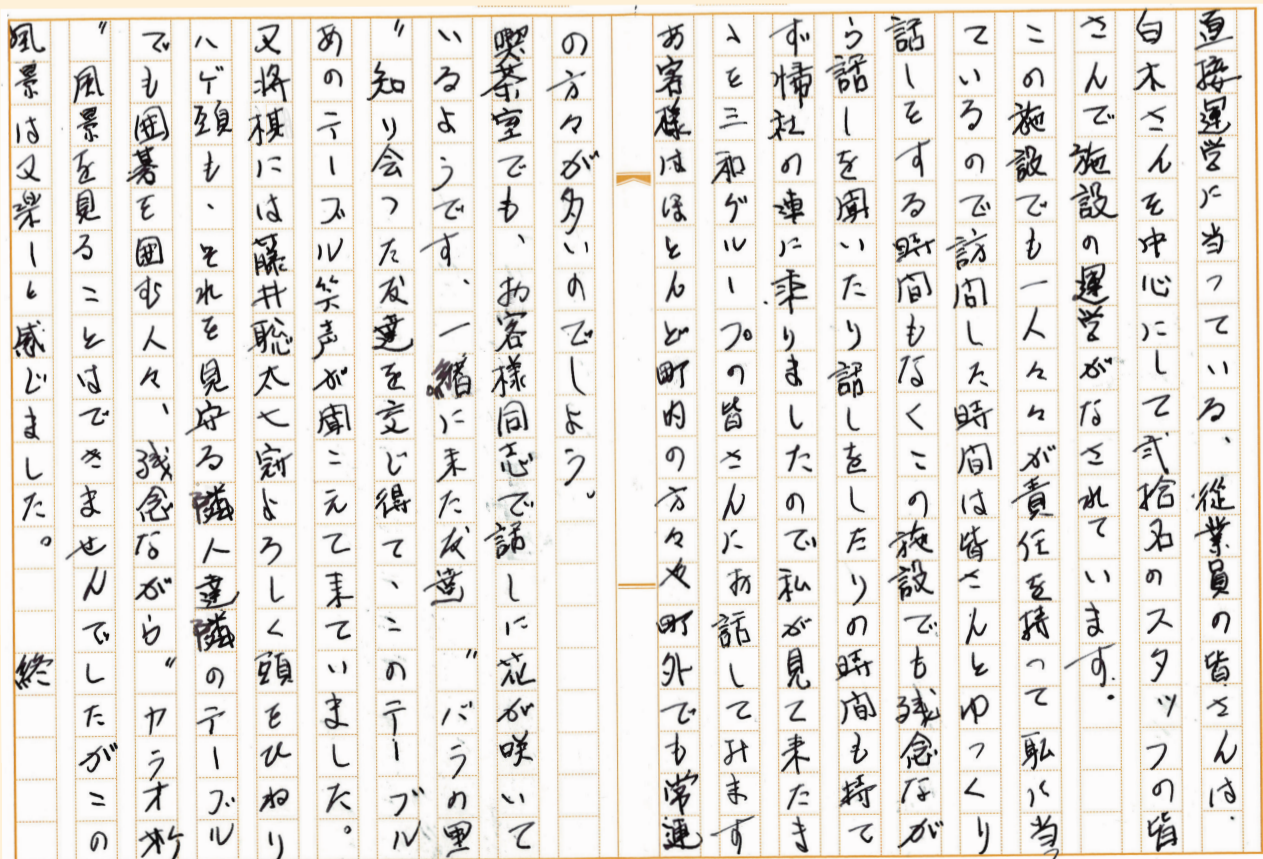 直接運営に当っている、従業員の皆さんは、
白木さんを中心にして弐拾名のスタッフの皆
さんで施設の運営がなされています。
この施設でも一人々々が責任を持って私に当
ているので訪問した時間は皆さんとゆっくり
話しをする時間もなくこの施設でも残念なが
ら話しを聞いたり話しをしたりの時間も持て
ず帰社の車に乗りましたので私が見て来たま
ゝを三和グループの皆さんにお話してみます
お客様はほとんど町内の方々や町外でも常連
の方々が多いのでしよう。
喫茶室でも、お客様同志で話しに花が咲いて
いるようです、一緒に来た友達〝バラの里
〝知り会った友達を交じ得て、このテーブル
あのテーブル笑声が聞こえて来ていました。
又将棋には藤井聡太七冠よろしく頭をひねり
ハゲ頭も、それを見守る隣人達隣のテーブル
でも囲碁を囲む人々、残念ながら〝カラオケ
〝風景を見ることはできませんでしたがこの
風景は又楽しと感じました。 終